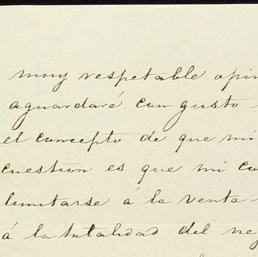 muy respetable opin
aguardaré con gusto
el concepto de que mi
cuestion es que mi co
limitarse á la venta
á la totalidad del neg